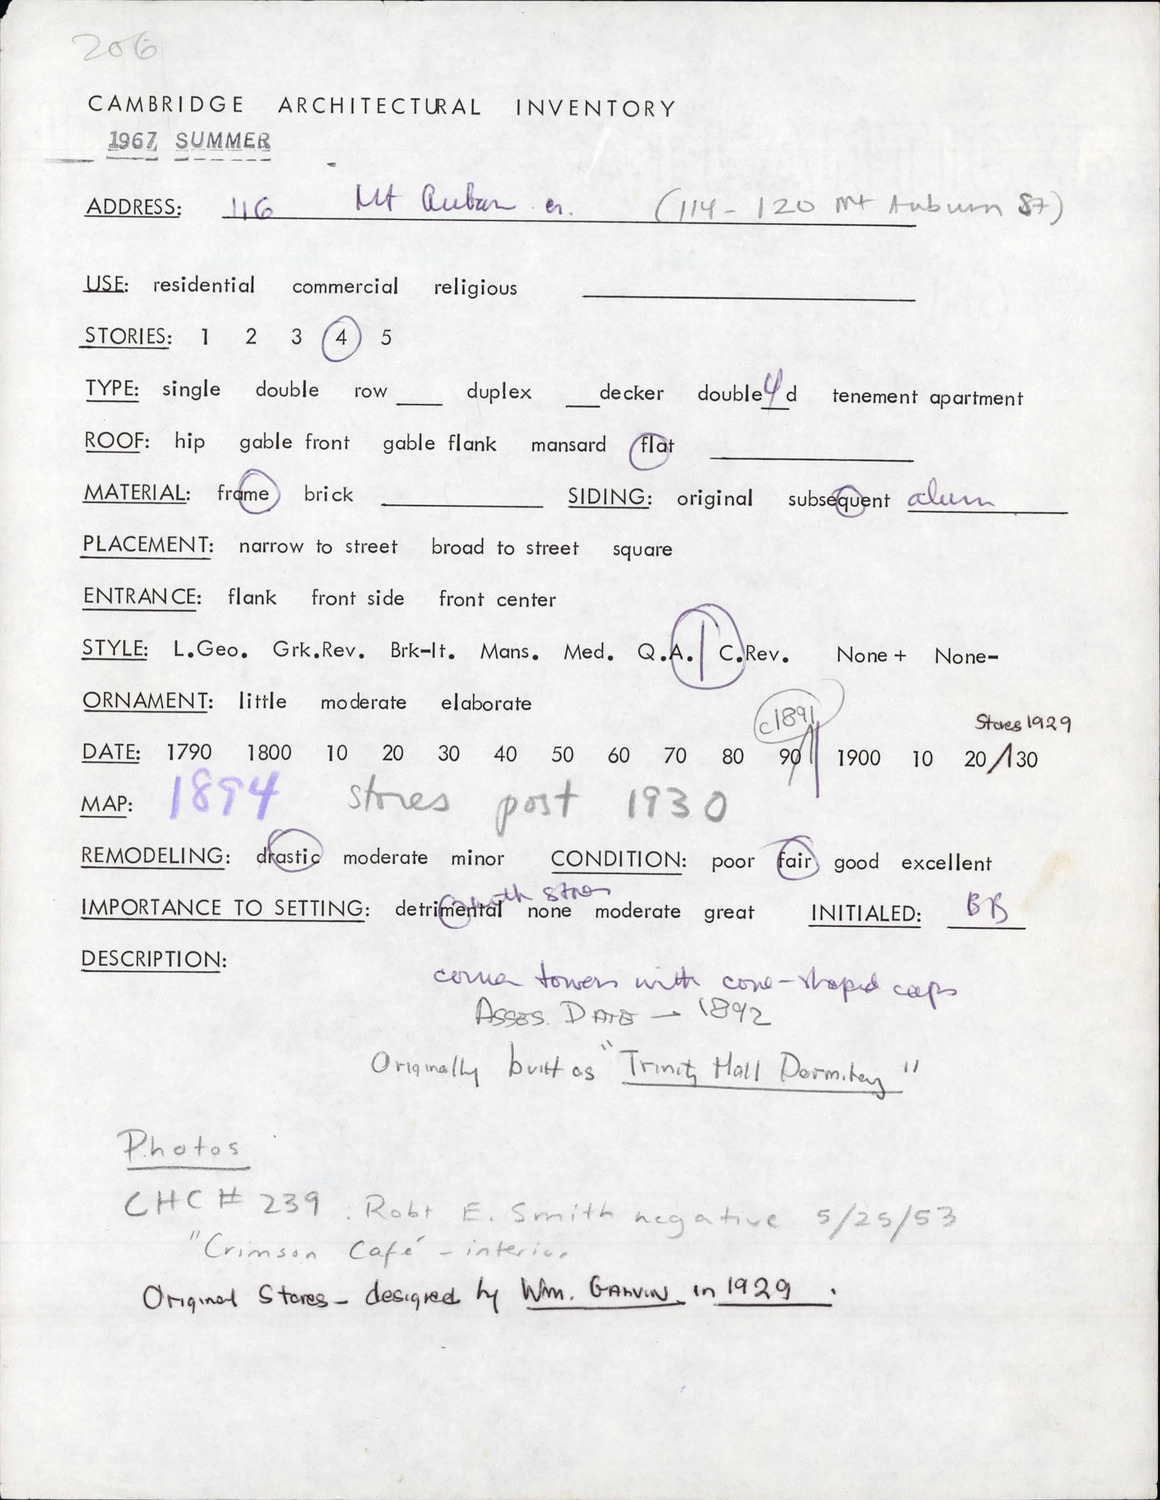 206
CAMBRIDGE ARCHITECTURAL INVENTORY
1967 SUMMER
ADDRESS: 116 Mt Auburn (114 - 120 Mt Auburn St)
USE: residential commercial religious
STORIES: 1 2 3 4 5
TYPE: single double row ___ duplex ___decker double 4 d tenement apartment
ROOF: hip gable front gable flank mansard flat
MATERIAL: frame brick SIDING: original subsequent alum
PLACEMENT: narrow to street broad to street square
ENTRANCE: flank front side front center
STYLE: L.Geo. Grk.Rev. Brk-It. Mans. Med. Q.A. | C.Rev. None+ None-
ORNAMENT: little moderate elaborate
c1891 Stores 1929
DATE: 1790 1800 10 20 30 40 50 60 70 80 90 1900 10 20 / 30
MAP: 1894 stores post 1930
REMODELING: drastic moderate minor CONDITION: poor fair good excellent
with stores
IMPORTANCE TO SETTING: detrimental none moderate great INITIALED: BB
DESCRIPTION:
corner towers with cone-shaped caps
ASSES. DATE - 1892
Originally built as "Trinity Hall Dormitory"
Photos
CHC # 239. Robt E. Smith negative 5/25/53
"Crimson Café" - interior
Original Stores - designed by Wm. GALVIN in 1929.